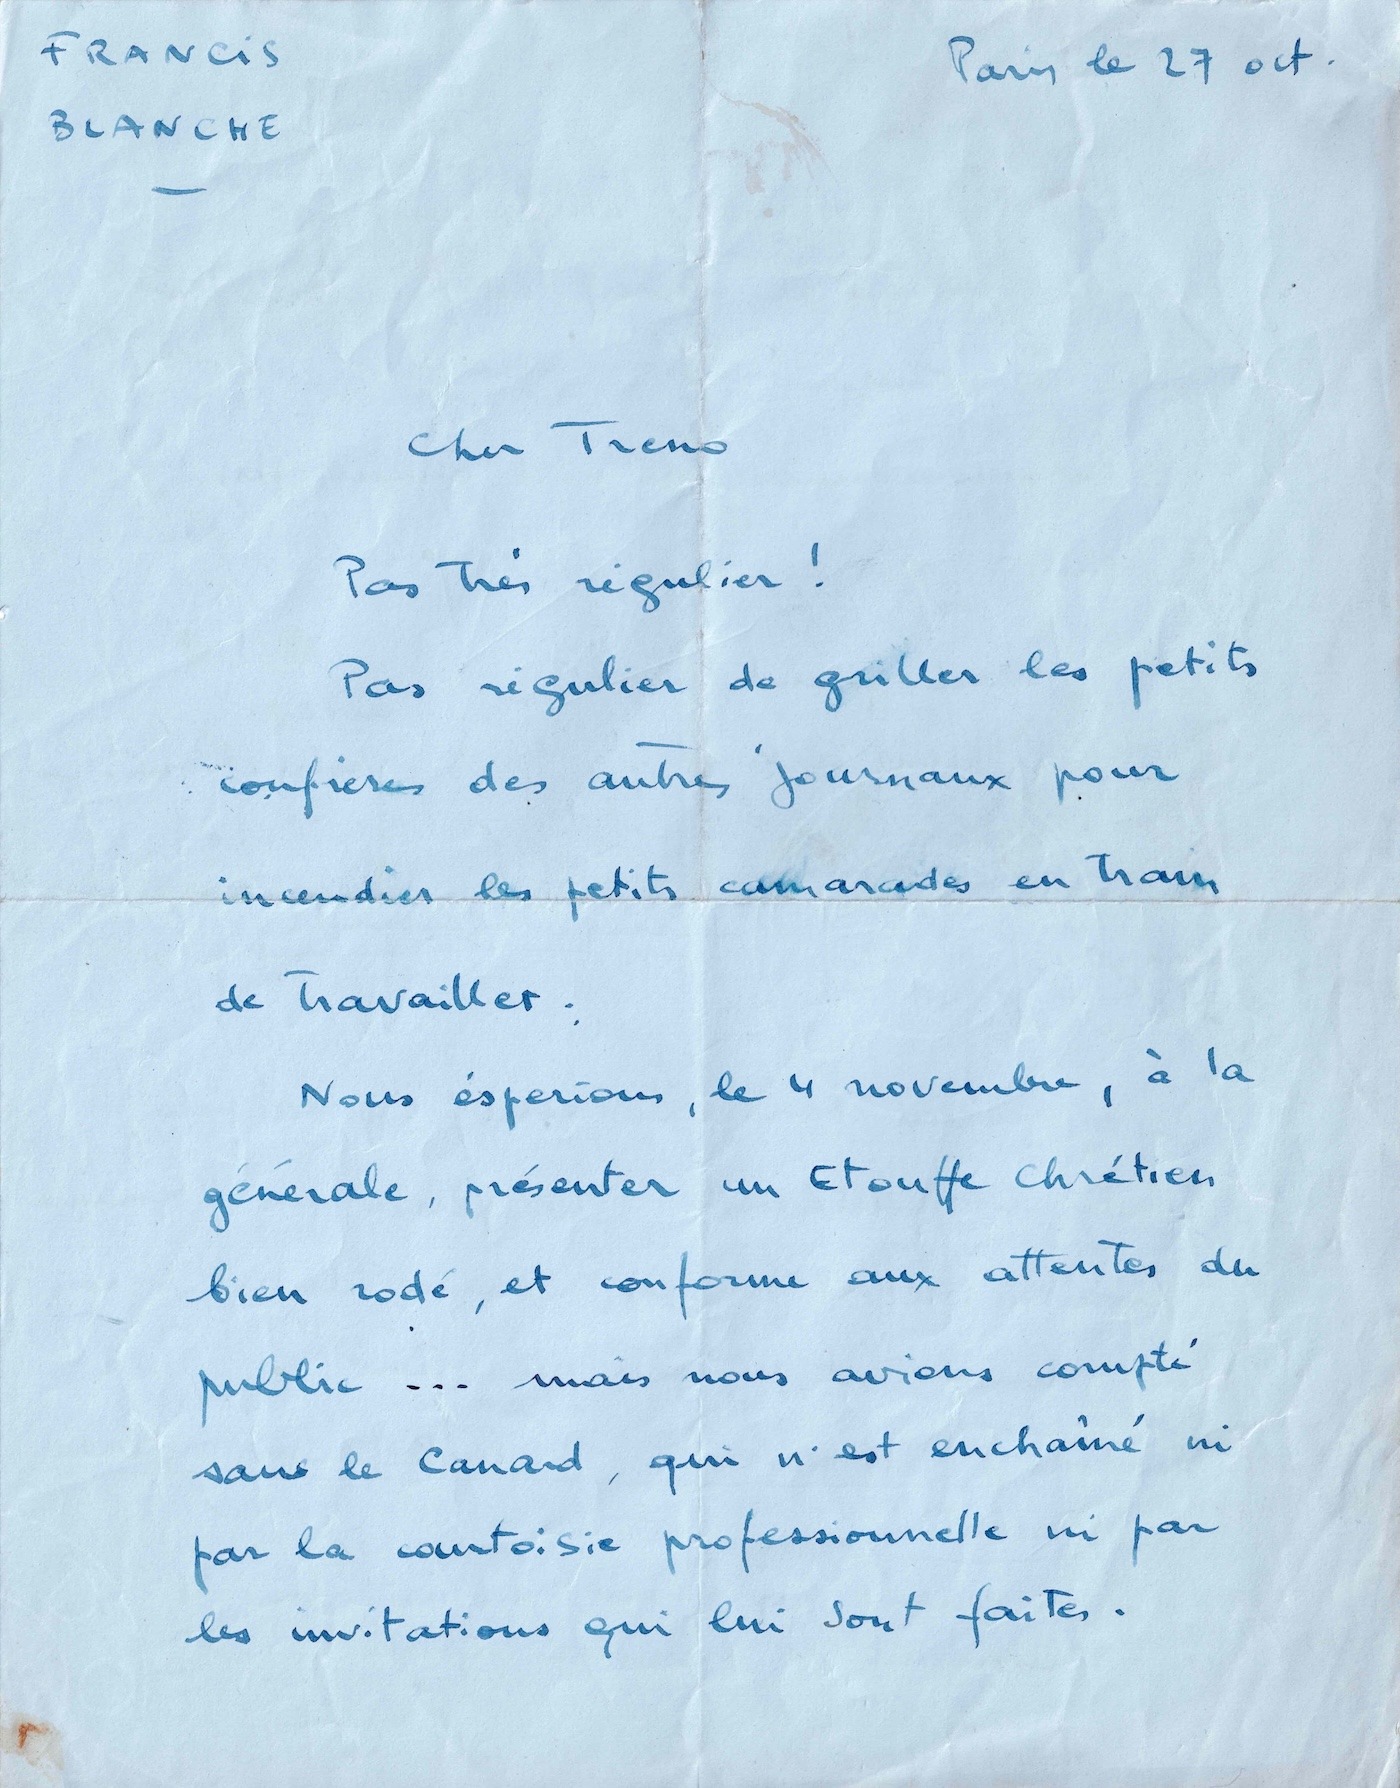 FRANCIS
BLANCHE
Paris le 27 oct.
Cher Treno
Pas très régulier !
Pas régulier de griller les petits
confrères des autres journaux pour
incendier les petits camarades en train
de travailler.
Nous éspérions, le 4 novembre, à la
générale, présenter un Etouffe Chrétien
bien rodé, et conforme aux attentes du
public ... mais nous avions compté
sans le Canard, qui n'est enchaîné ni
par la courtoisie professionnelle ni par
les invitations qui lui sont faites.